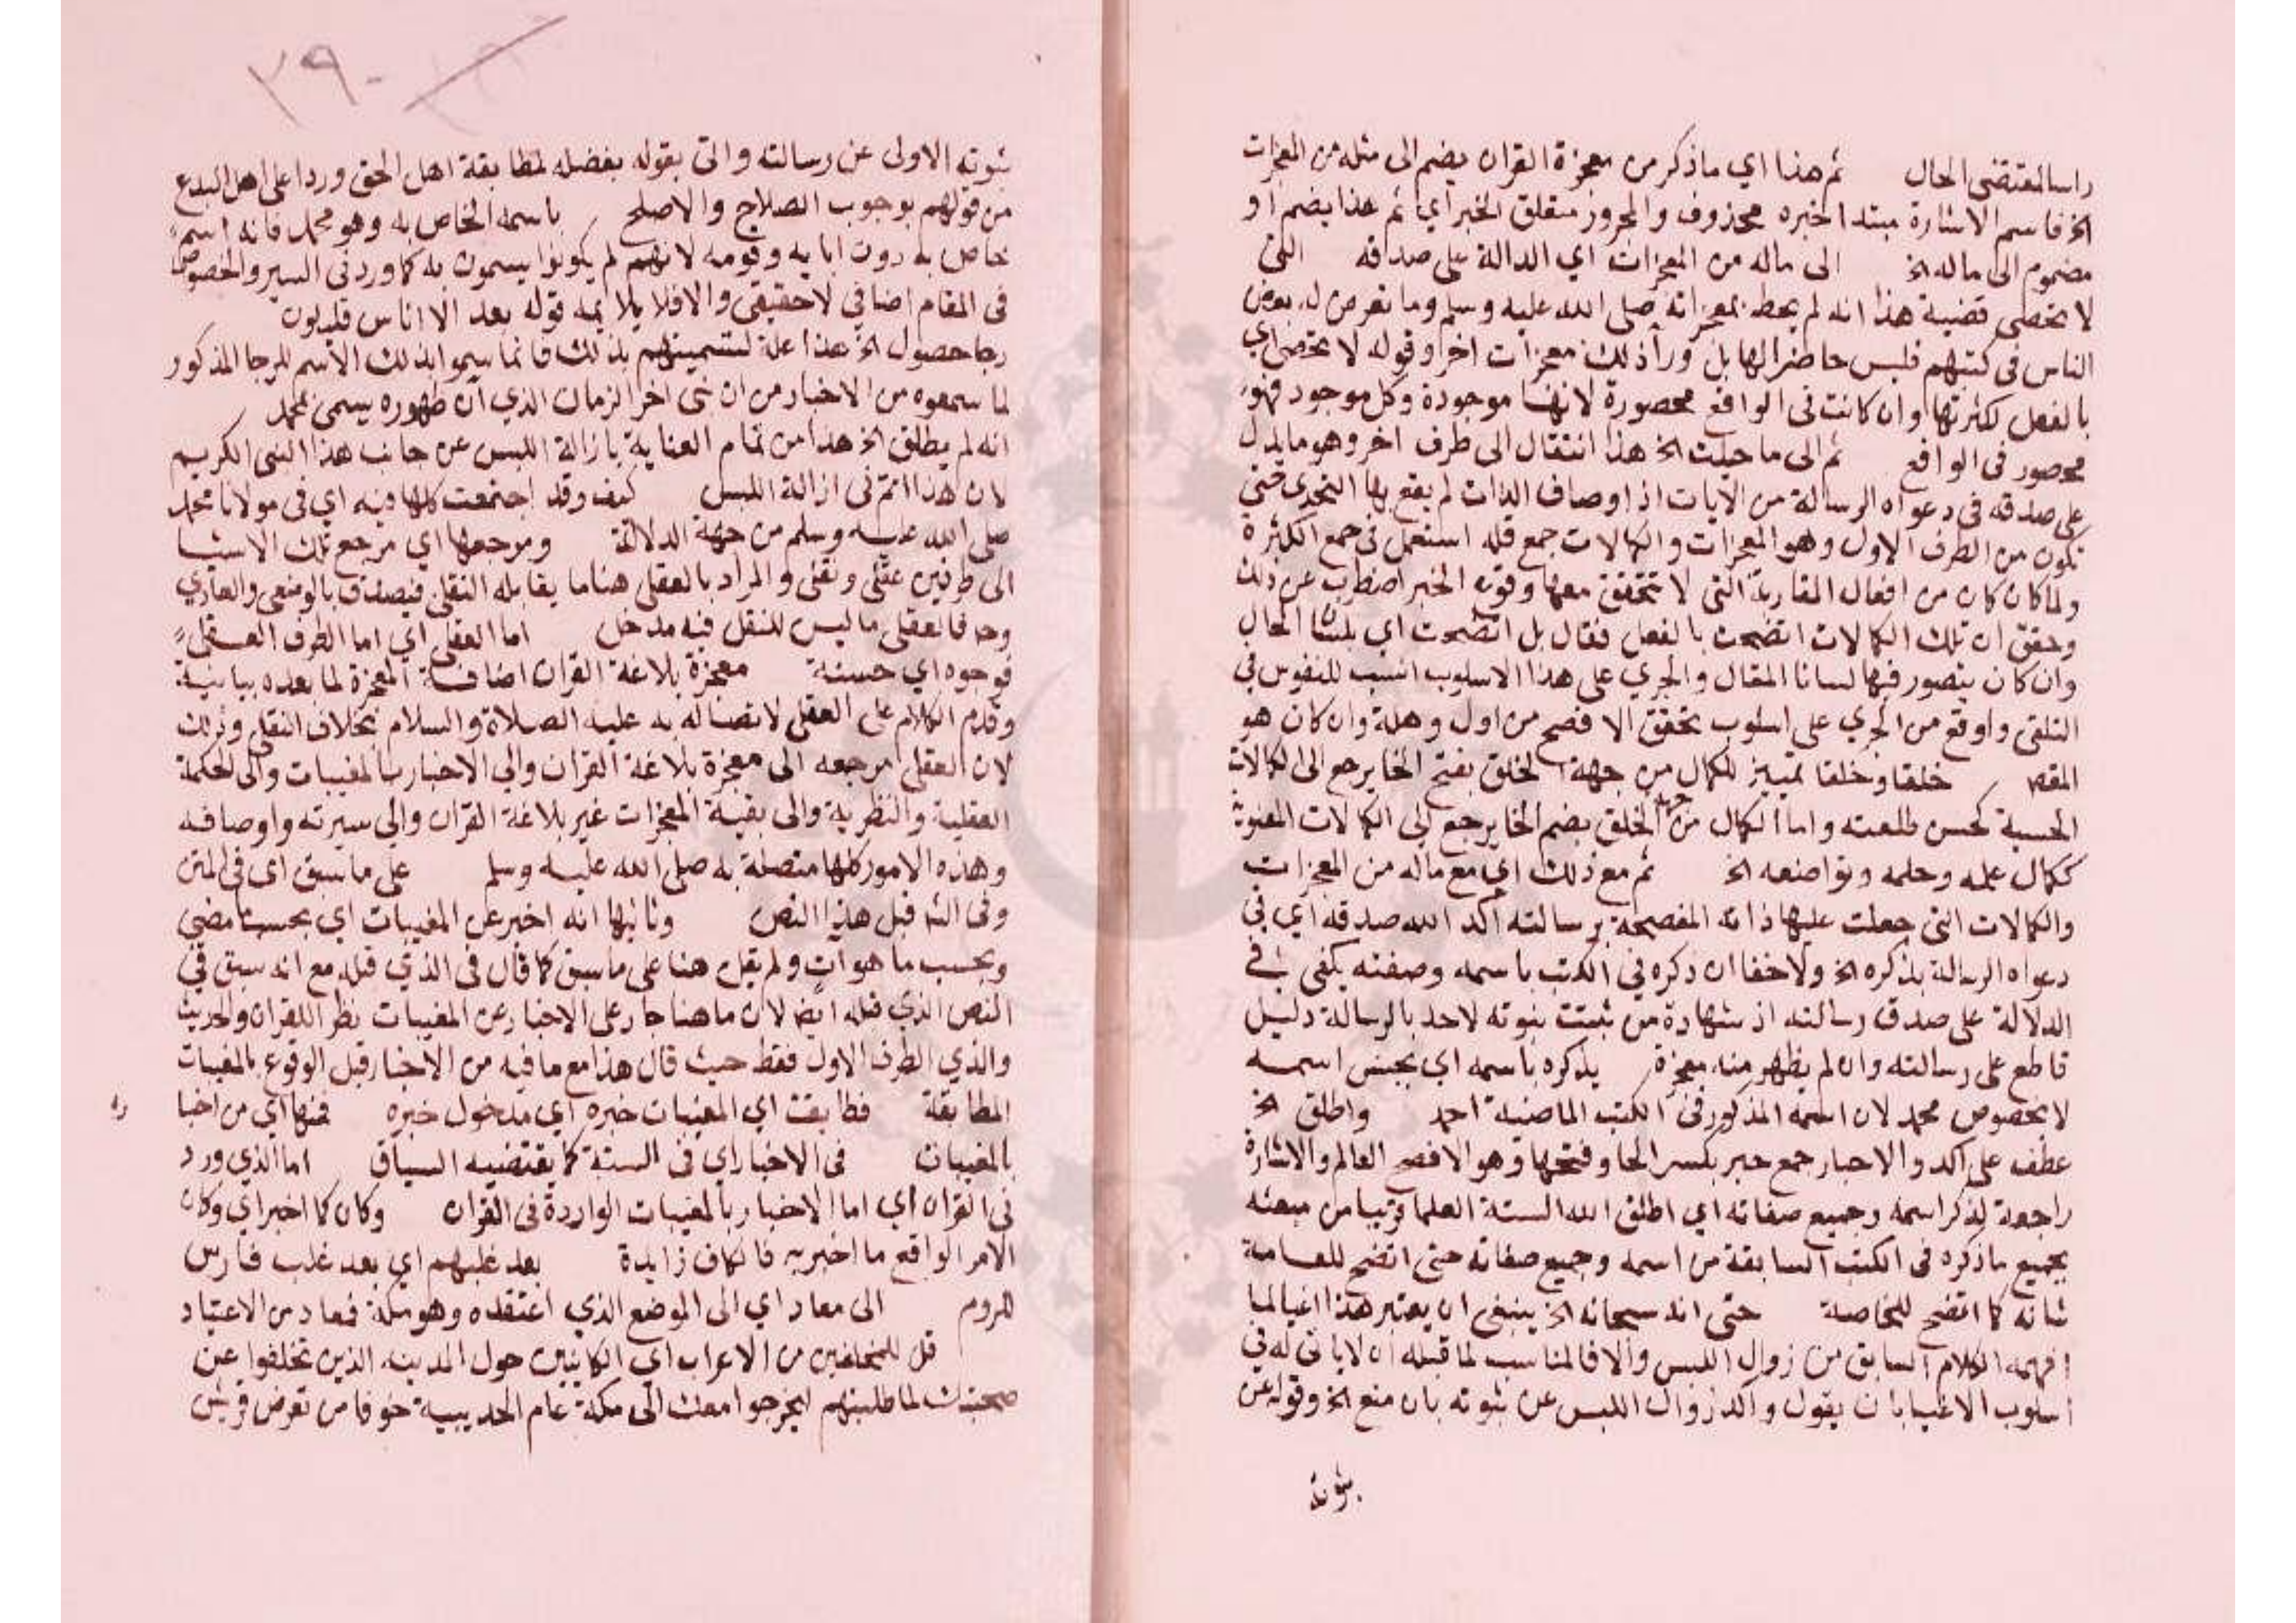 راسا لمقتضى الحال ثم هذا اي ما ذكر من معجزة القران يضم الى مثله من المعجزات
الخ فاسم الاشارة مبتدا خبره محذوف والمجرور متعلق الخبر اي ثم هذا يضم او
مضموم الى ماله الخ الى ماله من المعجزات اي الدالة على صدقه التي
لا تحصى قضية هذا انه لم يحط بمعجزاته صلى الله عليه وسلم وما تعرض له بعض
الناس في كتبهم فليس حاضرا لها بل ورا ذلك معجزات اخر وقوله لا تحصى اي
بالفعل لكثرتها وان كانت في الواقع محصورة لانها موجودة وكل موجود فهو
محصور في الواقع ثم الى ما جبلت الخ هذا انتقال الى طرف اخر وهو ما يدل
على صدقه في دعواه الرسالة من الايات اذ اوصاف الذات لم يقع بها التحدي حتى
تكون من الطرف الاول وهو المعجزات والكمالات جمع قله استعمل في جمع الكثرة
ولما كان كان من افعال المقاربة التي لا تتحقق معها وقوع الخبر اضطرب عن ذلك
وحقق ان تلك الكمالات اتضحت بالفعل فقال بل اتضحت اي بلسان الحال
وان كان يتصور فيها لسانا المقال والجري على هذا الاسلوب انسب للنفوس في
التلقي واوقع من الجري على اسلوب تحقق الافصح من اول وهلة وان كان هو
المقص خلقا وخلقا تمييز للكمال من جهة الخلق بفتح الخا يرجع الى الكمالات
الحسية كحسن طلعته واما الكمال من جهة الخلق بضم الخا يرجع الى الكمالات المعنوية
ككمال علمه وحلمه وتواضعه الخ ثم مع ذلك اي مع ماله من المعجزات
والكمالات التي جعلت عليها ذاته المفصحة برسالته اكد الله صدقه اي في
دعواه الرسالة بذكره الخ ولا خفا ان ذكره في الكتب باسمه وصفته يكفي في
الدلالة على صدق رسالته اذ شهادة من ثبتت نبوته لاحد بالرسالة دليل
قاطع على رسالته وان لم يظهر منه معجزة يذكره باسمه اي بجنس اسمه
لا بخصوص محمد لان اسمه المذكور في الكتب الماضية احمد واطلق الخ
عطف على اكد والاحبار جمع حبر بكسر الحا وفتحها وهو الافصح العالم والاشارة
راجعة لذكر اسمه وجميع صفاته اي اطلق الله السنة العلما قريبا من مبعثه
بجميع ما ذكره في الكتب السابقة من اسمه وجميع صفاته حتى اتضح للعامة
شانه كما اتضح للخاصة حتى انه سبحانه الخ ينبغي ان يعتبر هذا اغيا لما
افهمه الكلام السابق من زوال اللبس والا فالمناسب لما قبله ان لا ياتي له في
اسلوب الاغيا بان يقول واكد زوال اللبس عن نبوته بان منع الخ وقوله عن
نبوته
٣٩٠
نبوته الاولى عن رسالته والتي بقوله بفضله لمطابقة اهل الحق وردا على اهل البدع
من قولهم بوجوب الصلاح والاصلح باسمه الخاص به وهو محمد فانه اسم
خاص به دون ابايه وقومه لانهم لم يكونوا يسمون به كما ورد في السير والخصوص
في المقام اضافي لا حقيقي والا فلا يلايمه قوله بعد الا اناس قليلون
رجا حصول الخ هذا علة لتسميتهم بذلك فانما سموا بذلك الاسم للرجا المذكور
لما سمعوه من الاخبار من ان نبي اخر الزمان الذي ان ظهوره يسمى محمد
انه لم يطلق الخ هذا من تمام العناية بازالة اللبس عن جانب هذا النبي الكريم
لان هذا اتم في ازالة اللبس كيف وقد اجتمعت كلها فيه اي في مولانا محمد
صلى الله عليه وسلم من جهة الدلالة ومرجعها اي مرجع تلك الاشيا
الى طرفين عقلي ونقلي والمراد بالعقلي هنا ما يقابله النقلي فيصدق بالوضعي والعادي
وحـ فالعقلي ما ليس للنقل فيه مدخل اما العقلي اي اما الطرف العقلي
فوجوه اي خمسة معجزة بلاغة القران اضافة المعجزة لما بعده بيانية
وقدم الكلام على العقلي لاتصاله به عليه الصلاة والسلام بخلاف النقلي وذلك
لان العقلي مرجعه الى معجزة بلاغة القران والى الاخبار بالمغيبات والى الحكمة
العقلية والنظرية والى بقية المعجزات غير بلاغة القران والى سيرته واوصافه
وهذه الامور كلها متصلة به صلى الله عليه وسلم على ما سبق اي في المتن
وفي الشـ قبل هذا النص وثانيها انه اخبر عن المغيبات اي بحسب ما مضى
وبحسب ما هو ات ولم يقل هنا على ما سبق كما قال في الذي قبله مع انه سبق في
النص الذي قبله ايضا لان ما هنا جار على الاخبار عن المغيبات نظر اللقران والحديث
والذي الطرف الاول فقط حيث قال هذا مع ما فيه من الاخبار قبل الوقوع بالمغيبات
المطابقة فطابقت اي المغيبات خبره اي مدخول خبره فمنها اي من اخبا ره
بالمغيبات في الاخبار اي في السنة كما يقتضيه السياق اما الذي ورد
في القران اي اما الاخبار بالمغيبات الواردة في القران وكان كما اخبر اي وكان
الامر الواقع ما اخبر به فالكاف زايدة بعد غلبهم اي بعد غلب فارس
للروم الى معاد اي الى الموضع الذي اعتقده وهو مكة فمعاد من الاعتياد
قل للمخلفين من الاعراب اي الكاينين حول المدينة الذين تخلفوا عن
صحبتك لما طلبتهم ليخرجوا معك الى مكة عام الحديبية خوفا من تعرض قريش